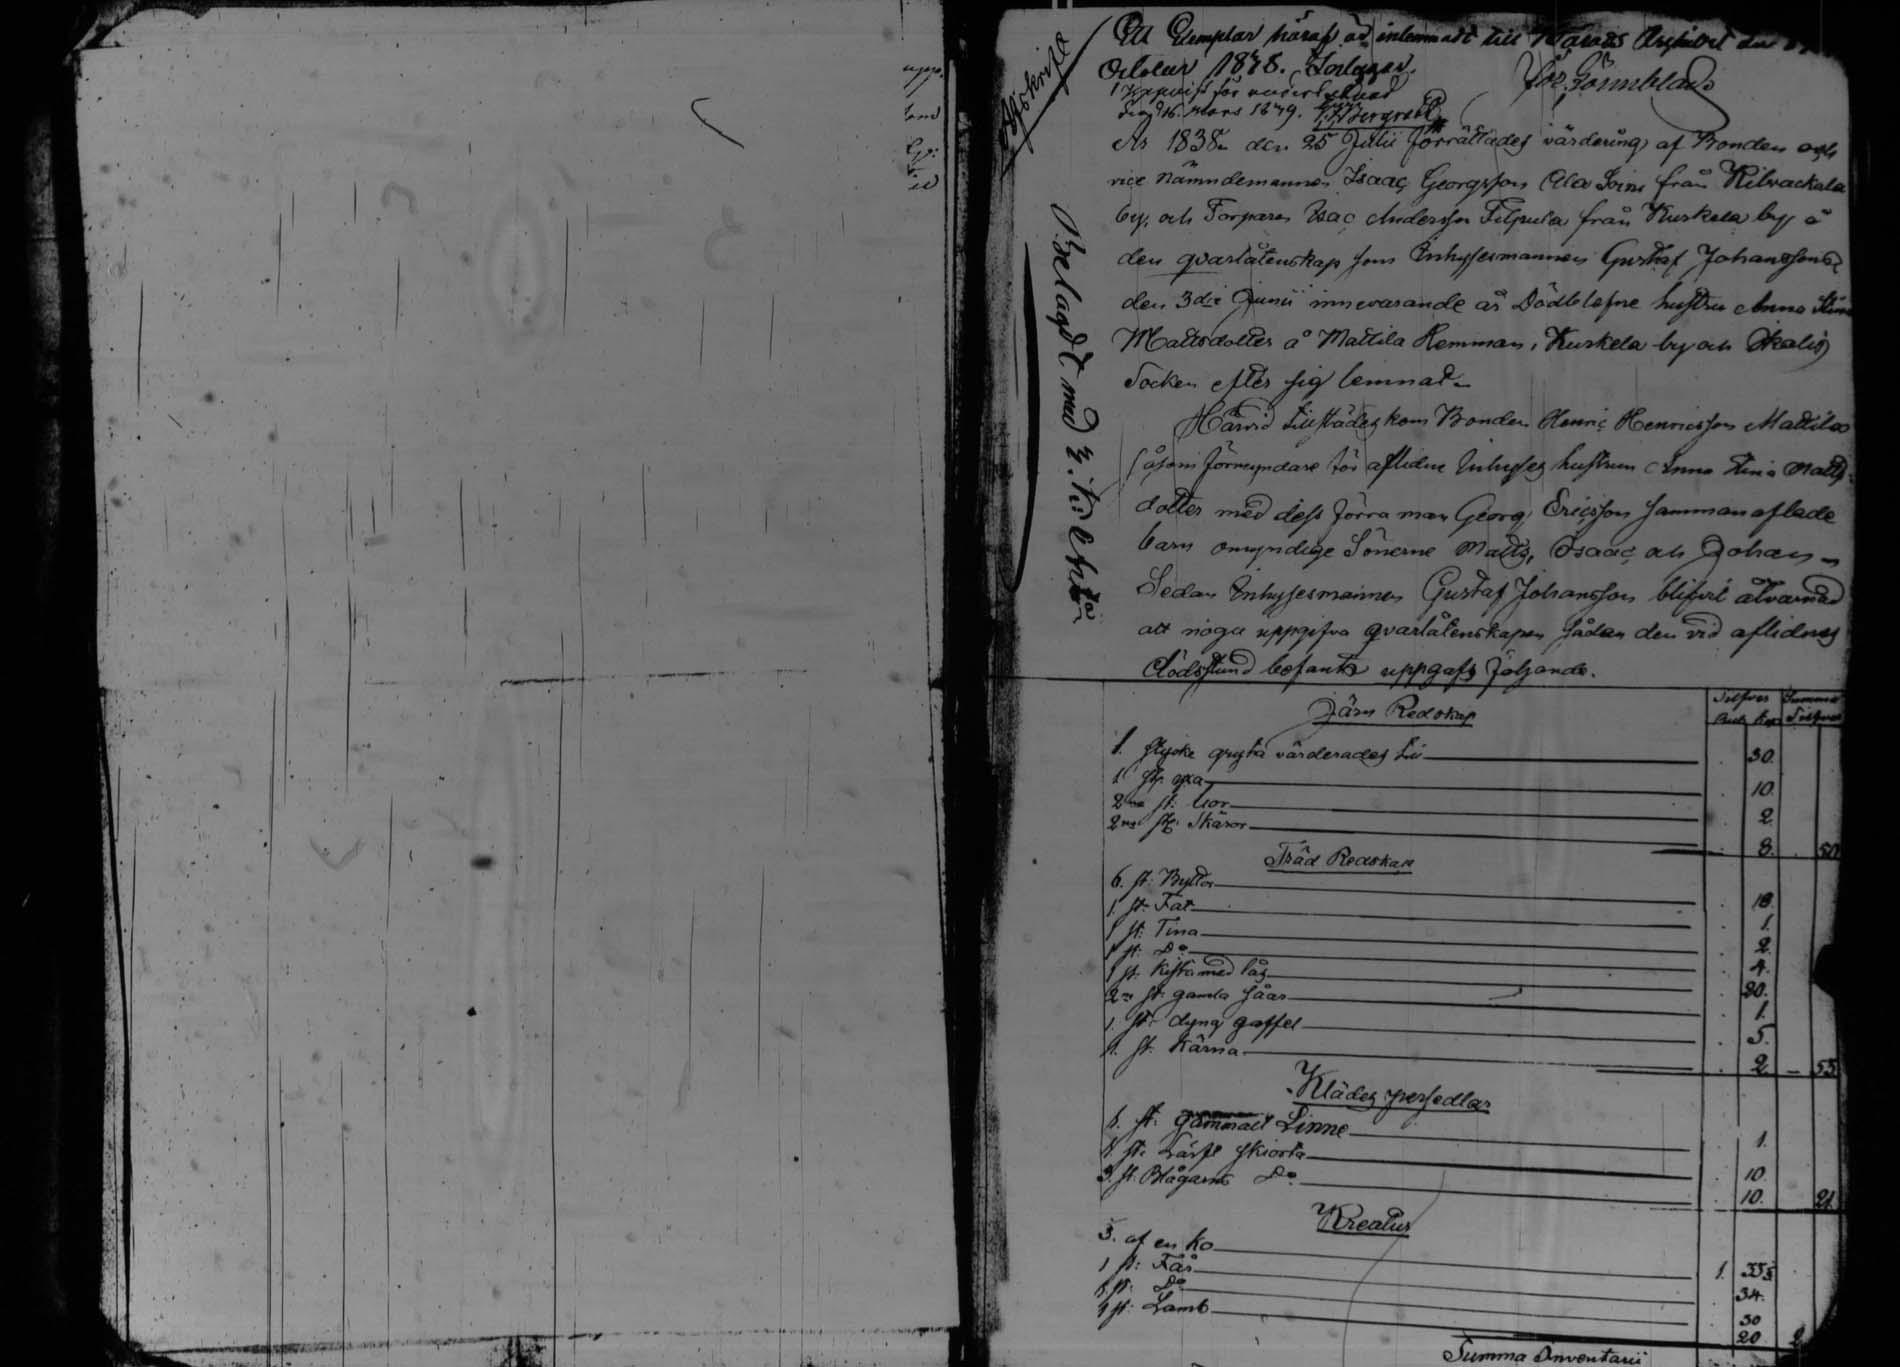 Ett Exemplar häraf är inlemnadt till Härads Arkivet den
October 1878. Jos. Törnblad
Afskrift
16. Mars 1879.
År 1838 den 25 Julii förrättades värdering af Bonden och
vice nämndemannen Isaac Georgsson Ala Soini från Kilvackala
by, och Torparen Isac Andersson Filpula från Kuskela by å
den qvarlåtenskap som Inhysesmannen Gustaf Johanssons
den 3die Junii innevarande år Dödblefne hustru Anna Stina
Mattsdotter å Mattila Hemman, Kuskela by och Ikalis
Socken efter sig lemnat.
Härvid Tillstädes kom Bonden Henric Henricsson Mattila
såsom förmyndare för aflidne Inhyses hustrun Anna Stina Matts
dotter med dess förra man Georg Ericsson samman aflade
barn omyndige Sönerne Matts, Isaac och Johan
Sedan Inhysesmannen Gustaf Johansson blifvit åtvarnad
att noga uppgifva qvarlåtenskapen sådan den vid aflidnes
dödsstund befants uppgafs följande.
Belagdt med
Silfver Summa
Rub. Kop. Silfver
Järn Redskap
1. stycke gryta värderades till 30.
1 st. yxa 10.
2ne st: lior 2
2ne st: Skäror 8. 50
Träd Redskap
6. st: Byttor 18.
1. st: Fat 1.
1 st: Tina 2
1 st: Do 4.
1 st: Kista med lås 20.
2ne st: gamla såar 1.
1. st: dyng gaffel 5.
1. st: Kärna 2 53
Klädes persedlar
1. st: gammalt Linne 1.
1. st: Lärft skiorta 10.
3. st: Blågarns Do. 10. 21
Kreatur
3. af en ko 1.
1 st: Får 34.
1 st: Do 30
1 st: Lamb 20 2
Summa Inventarii